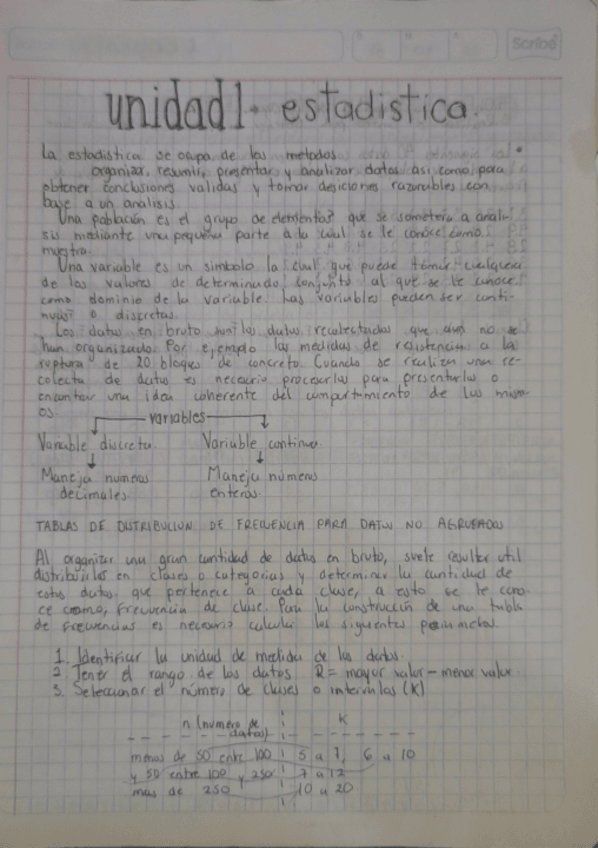 Scribe
unidad 1. estadistica.
La estadistica se ocupa de los metodos
organizar, resumir, presentar y analizar datos asi como para
obtener conclusiones validas y tomar desiciones razonables con
base a un analisis
Una población es el grupo de elementos que se sometera a anali-
sis mediante una pequeña parte a la cual se le conoce como
muestra.
Una variable es un simbolo la cual que puede tomar cualquiera
de los valores de determinado conjunto al que se le conoce
como dominio de la variable. Las variables pueden ser conti-
nuas o discretas.
Los datos en bruto son los datos recolectados que aun no se
han organizado. Por ejemplo las medidas de resistencia a la
ruptura de 20 bloques de concreto. Cuando se realiza una re-
colecta de datos es necesario procesarlos para presentarlos o
encontrar una idea coherente del comportamiento de los mism-
os.
variables
Variable discreta. Variable continua.
Maneja numeros Maneja números
decimales. enteros.
TABLAS DE DISTRIBUCION DE FRECUENCIA PARA DATOS NO AGRUPADOS
Al organizar una gran cantidad de datos en bruto, suele resultar util
distribuirlos en clases o categorias y determinar la cantidad de
estos datos que pertenece a cada clase, a esto se le cono-
ce como, frecuencia de clase. Para la construcción de una tabla
de frecuencias es necesario calcula los siguientes parametros.
1. Identificar la unidad de medida de los datos.
2. Tener el rango de los datos R= mayor valor - menor valor
3. Seleccionar el número de clases o intervalos (K)
n (numero de K
datos)
menos de 50 entre 100 5 a 7, 6 a 10
y 50 entre 100 y 250 7 a 12
mas de 250 10 a 20